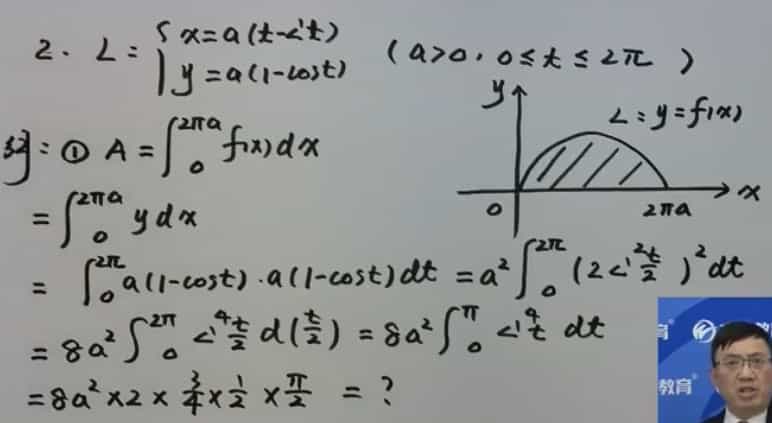 2. L: { x=a(t-sin t)
y=a(1-cost) (a>0, 0≤t≤2π)
y
L: y=f(x)
0 2πa x
解: ① A=∫₀^{2πa} f(x)dx
=∫₀^{2πa} ydx
=∫₀^{2π} a(1-cost)·a(1-cost)dt = a²∫₀^{2π} (2sin² t/2)² dt
=8a²∫₀^{2π} sin⁴ t/2 d(t/2) = 8a²∫₀^{π} sin⁴t dt
=8a²×2×3/4×1/2×π/2 = ?
育
教育